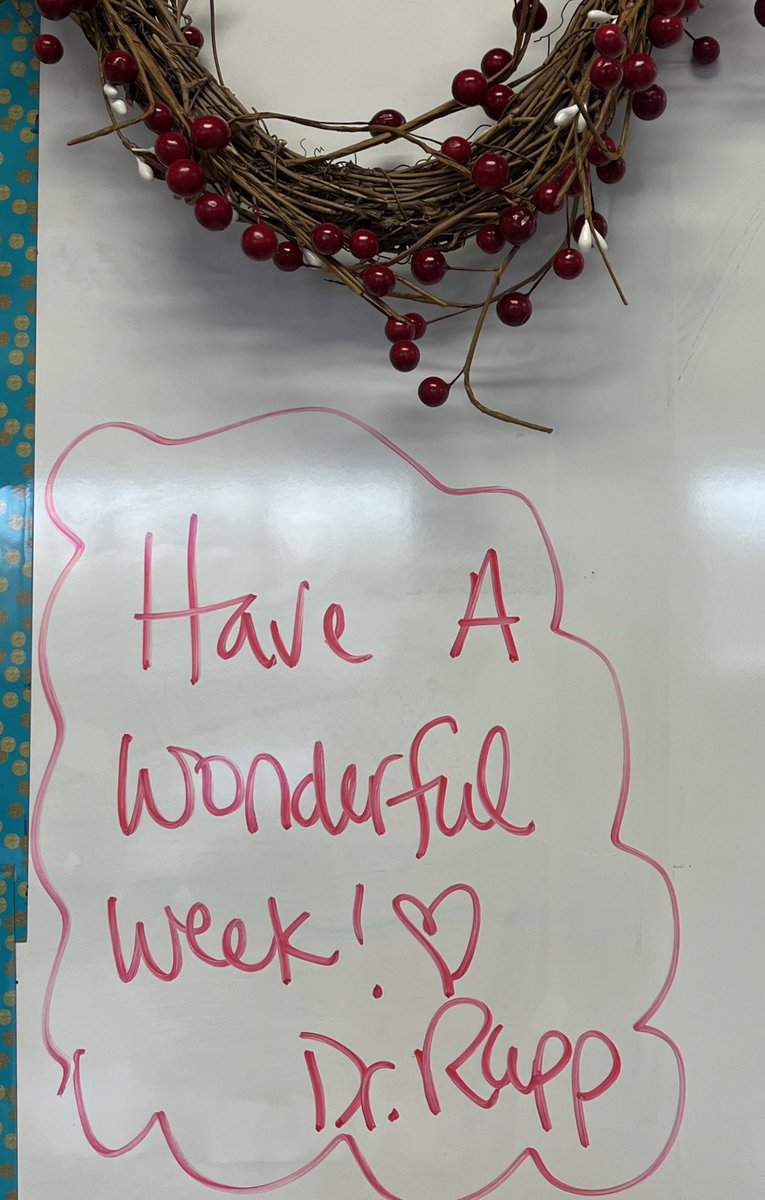 Have A
Wonderful
Week! ♡
Dr. Rapp